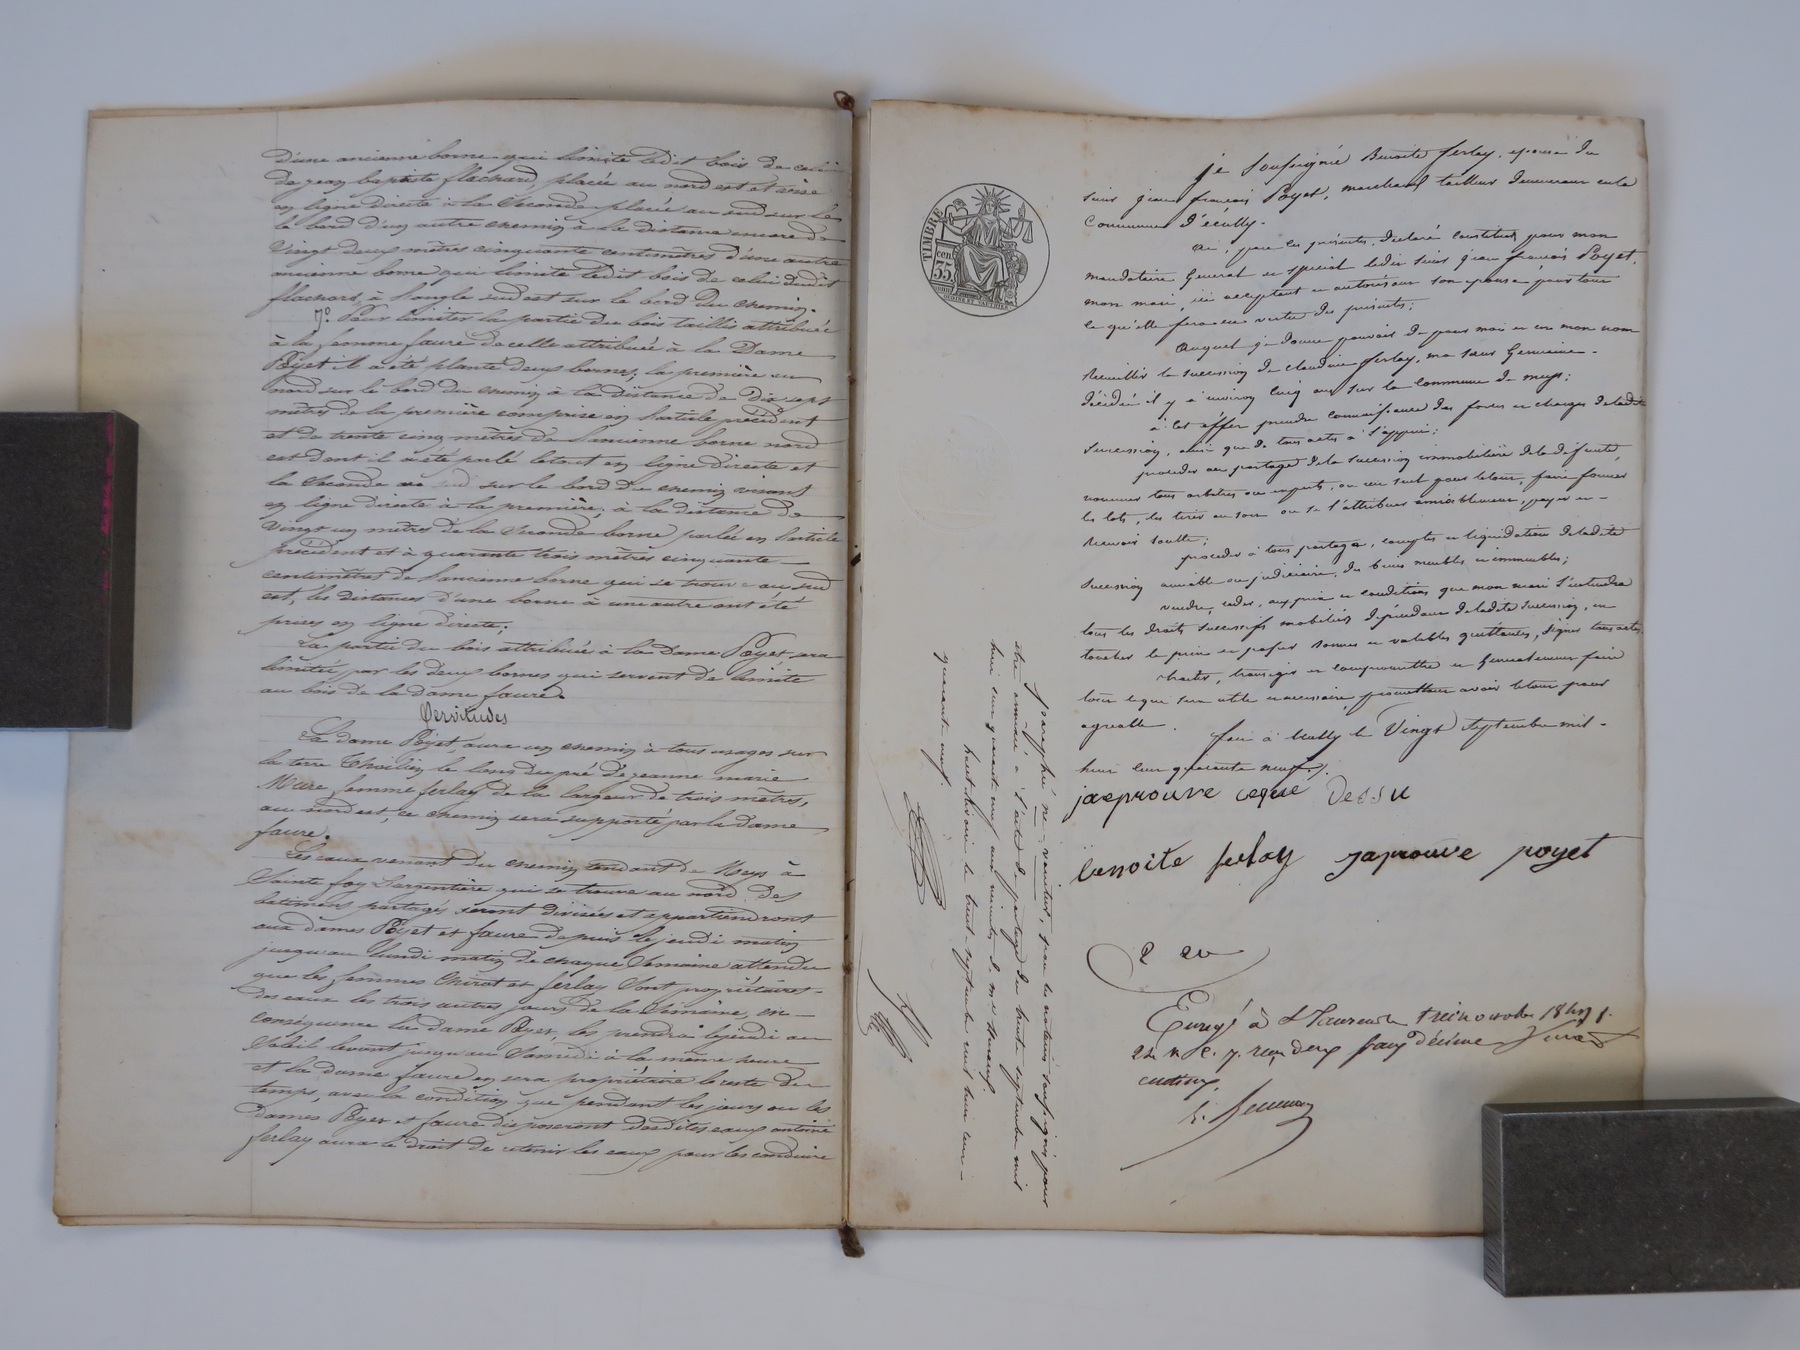 d'une ancienne borne qui limite ledit bois de celui
de jean baptiste flachard, placée au nord est et vise
en ligne directe à la Seconde placée au sud sur le
le bord d'un autre chemin à la distance encore de
Vingt deux mètres cinquante centimètres d'une autre
ancienne borne qui limite ledit bois de celui dudit
flachard, à l'angle sud est sur le bord du chemin.
7º. Pour limiter la partie du bois taillis attribuée
à la femme faure de celle attribuée à la Dame
Poyet il a été planté deux bornes, la première au
nord sur le bord du chemin à la distance de Dix sept
mètres de la première comprise en l'article précédent
et de trente cinq mètres de l'ancienne borne nord
est dont il a été parlé le tout en ligne directe et
la Seconde au sud sur le bord du chemin visant
en ligne directe à la première, à la distance de
Vingt un mètres de la Seconde borne parlée en l'article
précédent et à quarante trois mètres cinquante
centimètres de l'ancienne borne qui se trouve au sud
est, les distances d'une borne à une autre ont été
prises en ligne directe;
La partie du bois attribuée à la Dame Poyet sera
limitée par les deux bornes qui servent de limite
au bois de la dame faure.
Servitudes
La dame Poyet, aura un chemin à tous usages sur
la terre le long du pré de jeanne marie
femme ferlay de la largeur de trois mètres,
au nord est, ce chemin sera supporté par la dame
faure.
Les eaux venant du chemin tendant de Meys à
Sainte foy Largentière qui se trouve au nord des
bâtimens partagés seront divisées et appartiendront
aux dames Poyet et faure depuis le jeudi matin
jusqu'au lundi matin de chaque Semaine attendu
que les femmes Chirat et ferlay Sont propriétaires
des eaux les trois autres jours de la Semaine, en
conséquence la dame Poyet, les prendra le jeudi au
Soleil levant jusqu'au Samedi à la même heure
et la dame faure en sera propriétaire le reste du
temps, avec la condition que pendant les jours ou les
Dames Poyet et faure disposeront desdites eaux antoine
ferlay aura le droit de retenir les eaux pour les conduire
TIMBRE
35 cen
je Soussignée Benoite ferlay, épouse du
Sieur jean françois Poyet, marchand tailleur demeurant en la
Commune d'écully.
Ai, par les présentes, déclaré constituer pour mon
mandataire Général et spécial ledit Sieur jean françois Poyet,
mon mari, ici acceptant et autorisant son épouse pour tout
ce qu'elle fera en vertu des présentes;
Auquel je donne pouvoir de pour moi et en mon nom
Recueillir la succession de claudine ferlay, ma Sœur Germaine
décédée il y a environ cinq ans sur la commune de meys;
à cet effet prendre connaissance des forces et charges de ladite
Succession, ainsi que de tous actes à l'appui;
procéder au partage de la succession immobilière de la défunte,
nommer tous arbitres ou experts, ou un seul pour le tout, faire former
les lots, les tirer au sort ou se l'attribuer amiablement, payer ou
Recevoir soulte;
procéder à tous partage, comptes et liquidation de ladite
Succession amiable ou judiciaire, des biens meubles et immeubles;
vendre, céder, aux prix et conditions que mon mari l'entendra
tous les droits successifs mobiliers dépendant de ladite succession, en
toucher le prix et passer bonnes et valables quittances, Signer tous actes,
traiter, transiger et compromettre et Généralement faire
tout ce que sera utile et nécessaire, promettant avoir le tout pour
agréable. fait à écully le Vingt Septembre mil
huit cent quarante neuf.
jaeprouve ceque dessu
benoite ferlay japrouve poyet
Enregé à St Laurent le treize octobre 1849 f.
22 R C. 7. reçu deux francs décime vingt
centimes.
paraphé ne varietur, par les notaires soussignés pour
être annexé à l'acte de partage du trente septembre mil
huit cent quarante neuf aux minutes de me
haut Rivoire le trente septembre mil huit cent
quarante neuf.